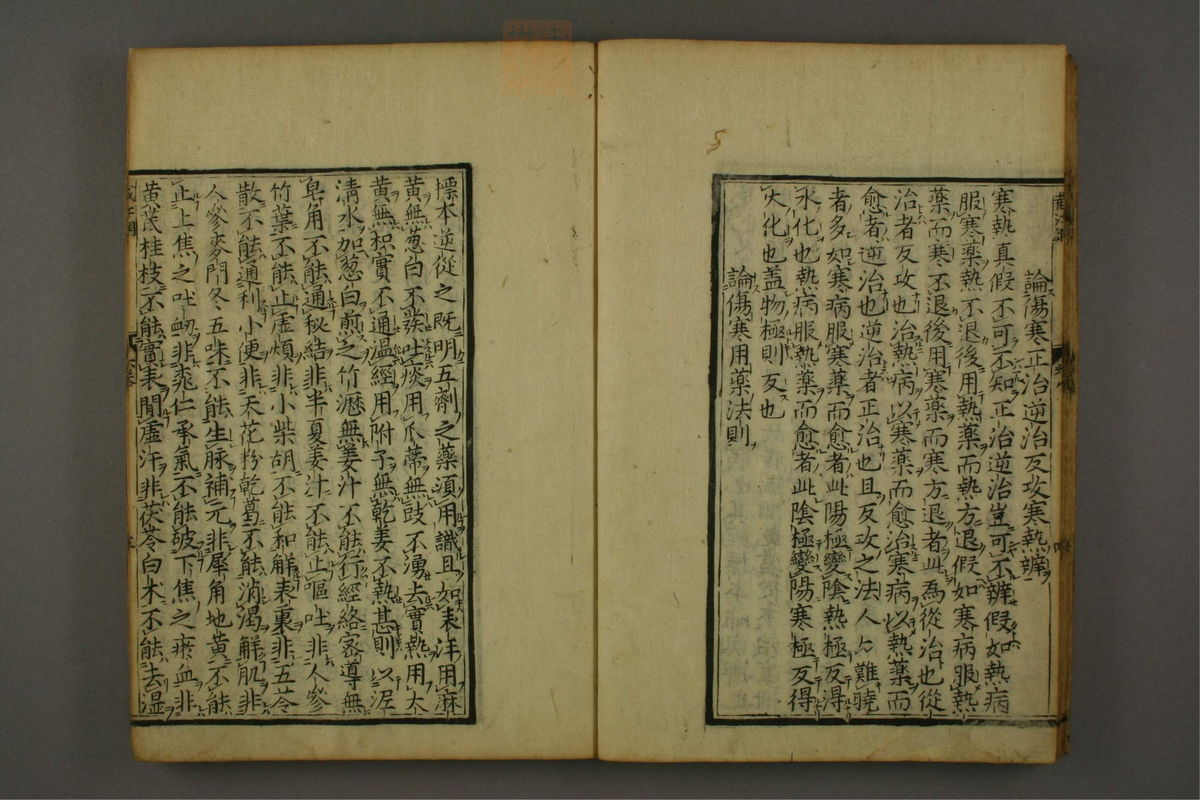 論傷寒正治逆治反攻寒熱辨
寒熱真假不可不知正治逆治豈可不辨假如熱病
服寒藥熱不退後用熱藥而熱方退假如寒病服熱
藥而寒不退後用寒藥而寒方退者此為從治也從
治者反攻也治熱病以寒藥而愈治寒病以熱藥而
愈者逆治也逆治者正治也且反攻之法人亽難曉
者多如寒病服寒藥而愈者此陽極變陰熱極反得
水化也熱病服熱藥而愈者此陰極變陽寒極反得
火化也蓋物極則反也
論傷寒用藥法則
標本逆從之既明五劑之藥須用識且如表汗用麻
黃無葱白不發吐痰用瓜蒂無豉不湧去實熱用大
黃無枳實不通温經用附子無乾姜不熱甚則以泥
清水加葱白煎之竹瀝無姜汁不能行經絡密導無
皂角不能通秘結非半夏姜汁不能止嘔吐非人參
竹葉不能止虛煩非小柴胡不能和解表裏非五苓
散不能通利小便非天花粉乾葛不能消渴解肌非
人參麥門冬五味不能生脉補元非犀角地黃不能
止上焦之吐衂非桃仁承氣不能破下焦之瘀血非
黄芪桂枝不能實表間虛汗非茯苓白术不能去湿